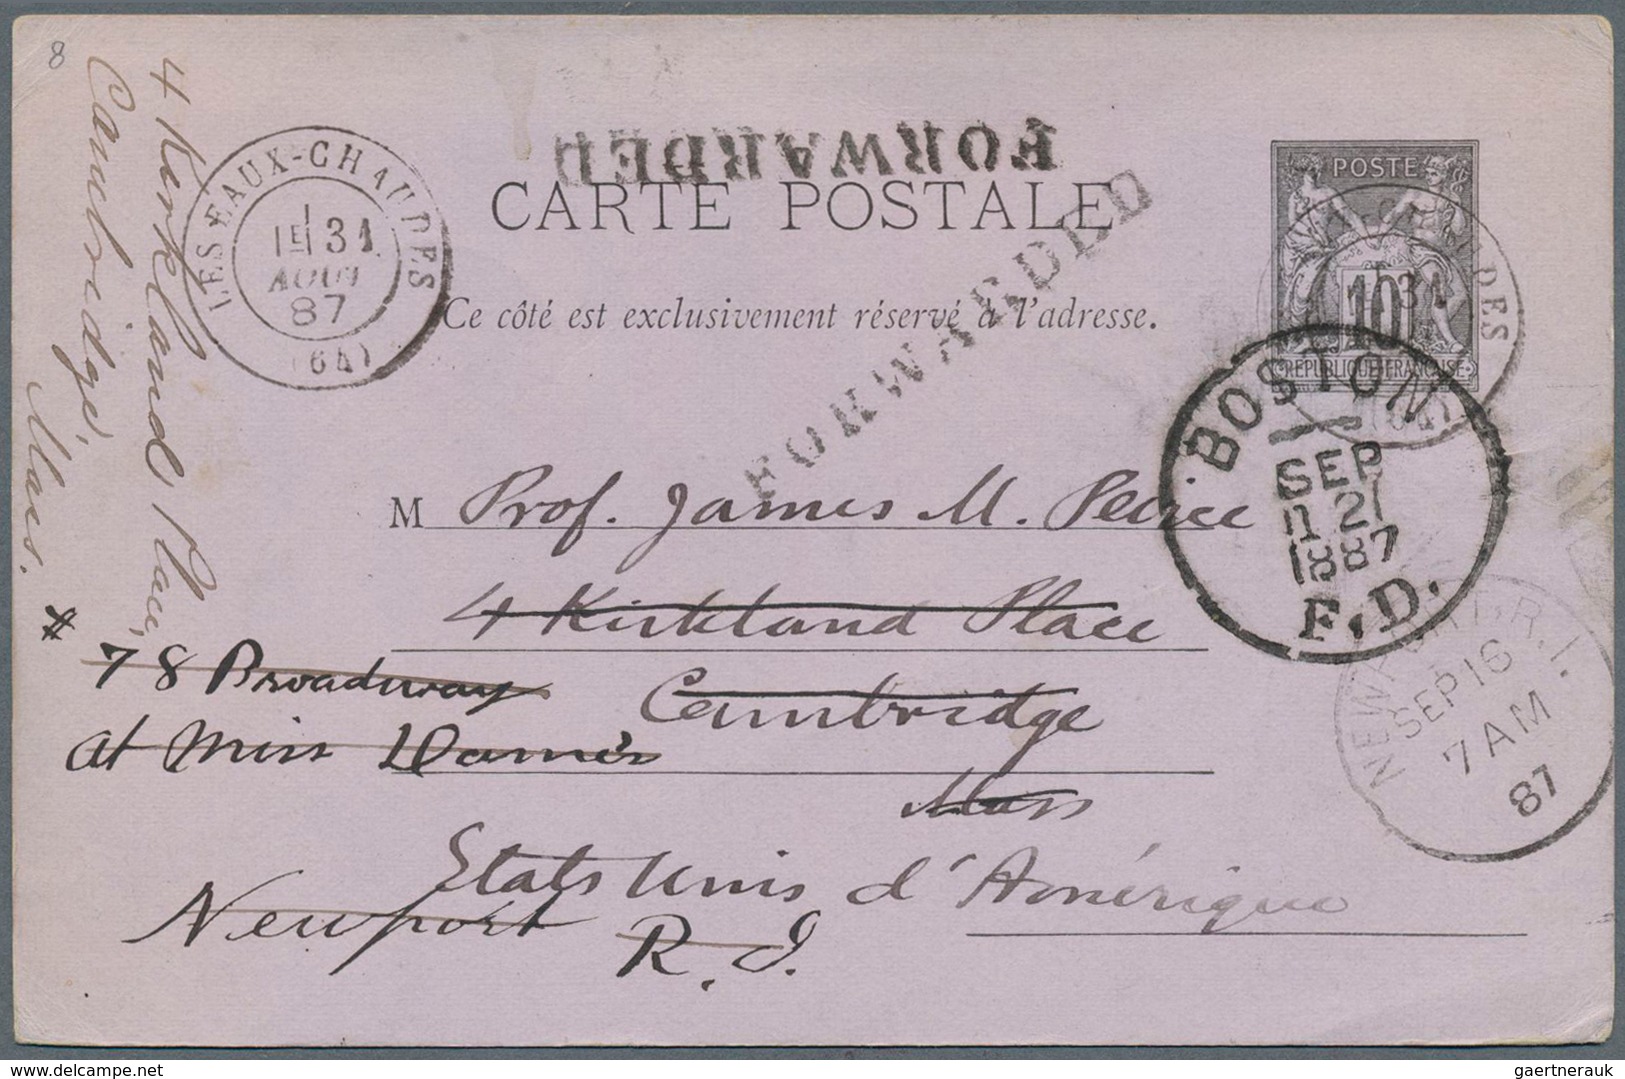 8
4 Kirkland Place,
Cambridge,
Mass.
LES EAUX-CHAUDES
1E 31
AOUT
87
(64)
FORWARDED
CARTE POSTALE
FORWARDED
Ce côté est exclusivement réservé à l'adresse.
POSTE
10
REPUBLIQUE FRANCAISE
31
DES
BOSTON
SEP
21
1887
F.D.
NEWPORT, R.I.
SEP 16
7 AM
87
M Prof. James M. Peirce
4 Kirkland Place
Cambridge
Mass
78 Broadway
at Miss
Etats Unis d'Amérique
Newport
R. I.
www.delcampe.net
gaertnerauk